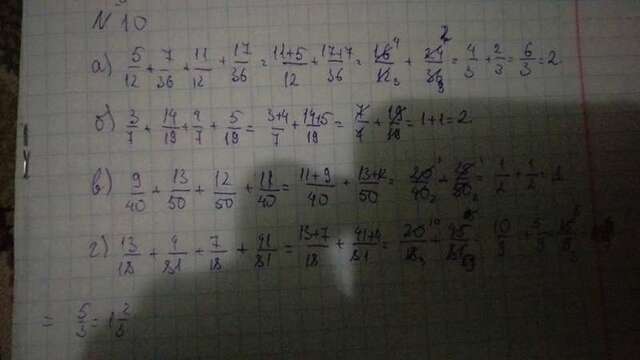 N 10
а) 5/12 + 7/36 + 11/12 + 17/36 = 11+5/12 + 17+7/36 = 16⁴/12₃ + 24²/36₃ = 4/3 + 2/3 = 6/3 = 2
б) 3/7 + 14/19 + 4/7 + 5/19 = 3+4/7 + 14+5/19 = 7/7 + 19/19 = 1+1=2
в) 9/40 + 13/50 + 12/50 + 11/40 = 11+9/40 + 13+12/50 = 20¹/40₂ + 25¹/50₂ = 1/2 + 1/2 = 1
г) 13/18 + 4/81 + 7/18 + 41/81 = 13+7/18 + 41+4/81 = 20¹⁰/18 + 45⁵/81₉ 10/9 + 5/9
= 5/3 = 1 2/3